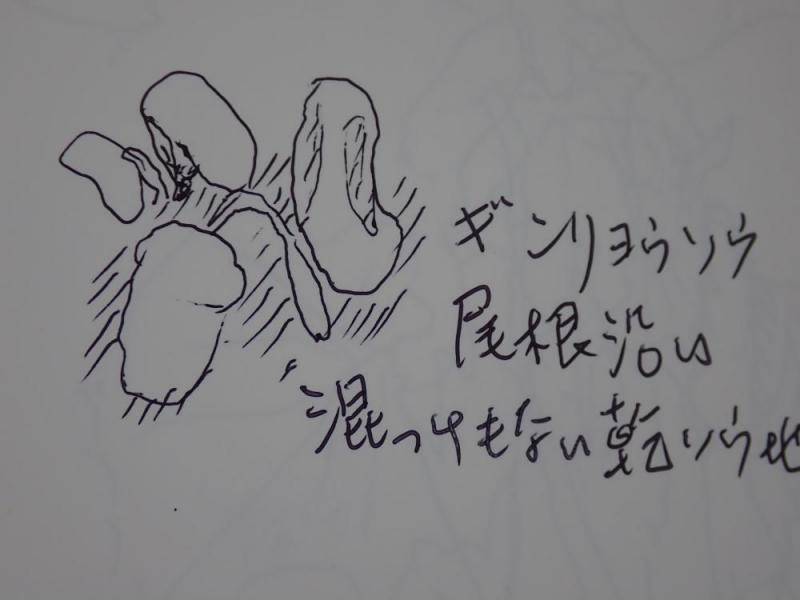 ギンリョウソウ
尾根沿い
混っけもない乾ソウ地